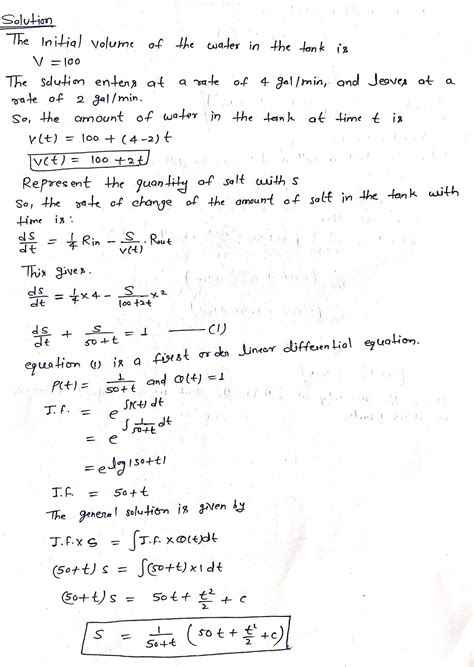 Solution
The Initial volume of the water in the tank is
V = 100
The solution enters at a rate of 4 gal/min, and leaves at a
rate of 2 gal/min.
So, the amount of water in the tank at time t is
V(t) = 100 + (4-2) t
V(t) = 100 + 2t
Represent the quantity of salt with S
So, the rate of change of the amount of salt in the tank with
time is :
dS/dt = 1/4 Rin - S/V(t) . Rout
This gives.
ds/dt = 1/4 × 4 - S/100+2t × 2
ds/dt + S/50+t = 1 —— (1)
equation (1) is a first order linear differential equation.
P(t) = 1/50+t and Q(t) = 1
I.f. = e^∫P(t) dt
= e^∫1/50+t dt
= e^log|50+t|
I.f. = 50+t
The general solution is given by
I.f. × S = ∫I.f. × Q(t)dt
(50+t) S = ∫(50+t) × 1 dt
(50+t) S = 50t + t²/2 + c
S = 1/50+t (50t + t²/2 + c)